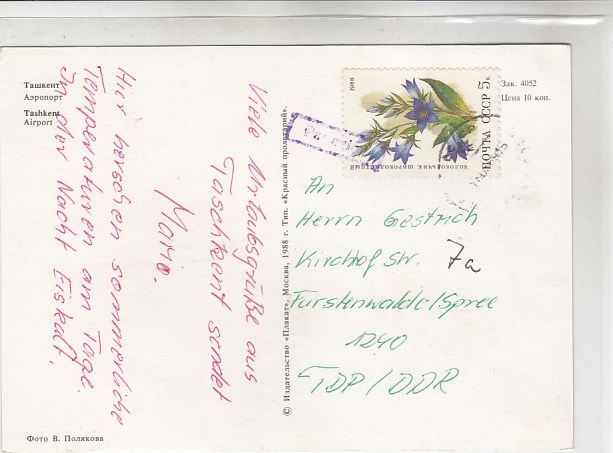 Ташкент
Аэропорт
Tashkent
Airport
Viele Urlaubsgrüße aus
Taschkent sendet
Mario.
Hier herschen sommerliche
Temperaturen am Tage.
In der Nacht Eiskalt.
Фото В. Полякова
© Издательство «Плакат», Москва, 1988 г. Тип. «Красный пролетарий».
1988
5к
ПОЧТА СССР
КОЛОКОЛЬЧИК ШИРОКОЛИСТНЫЙ
Зак. 4052
Цена 10 коп.
An
Herrn Gestrich
Kirchhof str. 7a
Fürstenwalde/Spree
1240
ГДР/DDR